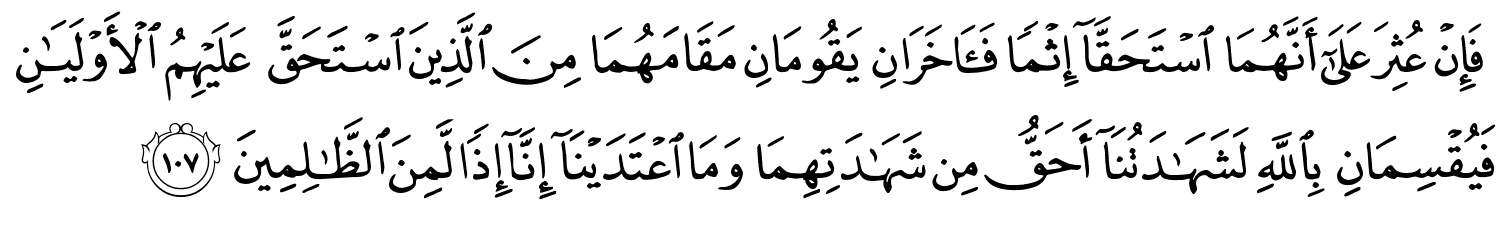 فَإِنۡ عُثِرَ عَلَىٰٓ أَنَّهُمَا ٱسۡتَحَقَّآ إِثۡمٗا فَـَٔاخَرَانِ يَقُومَانِ مَقَامَهُمَا مِنَ ٱلَّذِينَ ٱسۡتَحَقَّ عَلَيۡهِمُ ٱلۡأَوۡلَيَٰنِ
فَيُقۡسِمَانِ بِٱللَّهِ لَشَهَٰدَتُنَآ أَحَقُّ مِن شَهَٰدَتِهِمَا وَمَا ٱعۡتَدَيۡنَآ إِنَّآ إِذٗا لَّمِنَ ٱلظَّٰلِمِينَ ١٠٧